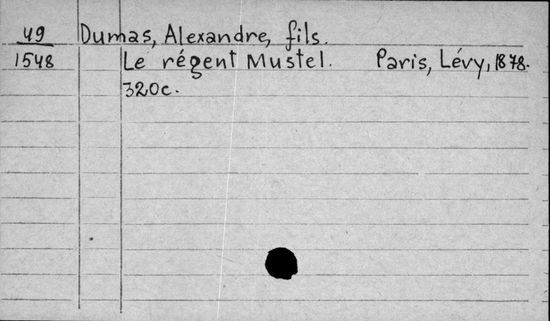 49 Dumas, Alexandre, fils.
1548 Le régent Mustel. Paris, Lévy, 1878.
320c.